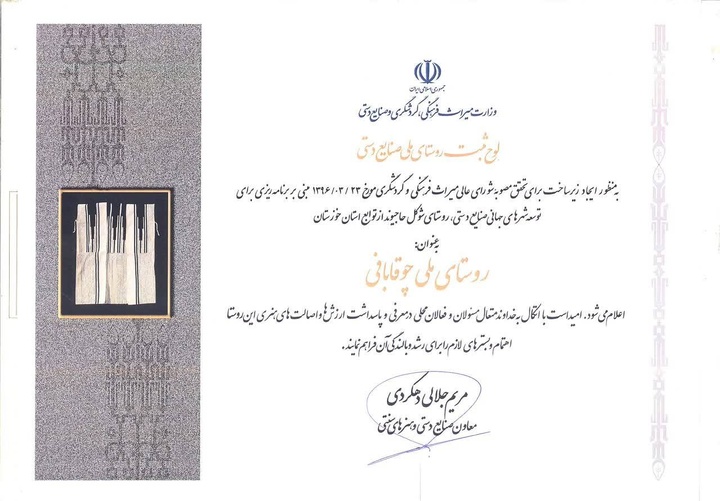 جمهوری اسلامی ایران
وزارت میراث فرهنگی، گردشگری و صنایع دستی
لوح ثبت روستای ملی صنایع دستی
به منظور ایجاد زیرساخت برای تحقق مصوبه شورای عالی میراث فرهنگی و گردشگری مورخ ۲۳ / ۰۳ / ۱۳۹۶ مبنی بر برنامه ریزی برای
توسعه شهرهای جهانی صنایع دستی، روستای شوکل حاجیوند از توابع استان خوزستان
به عنوان:
روستای ملی چوقابافی
اعلام می شود. امید است با اتکال به خداوند متعال مسئولان و فعالان محلی در معرفی و پاسداشت ارزش ها و اصالت های هنری این روستا
اهتمام و بسترهای لازم را برای رشد و بالندگی آن فراهم نمایند.
مریم جلالی دهکردی
معاون صنایع دستی و هنرهای سنتی